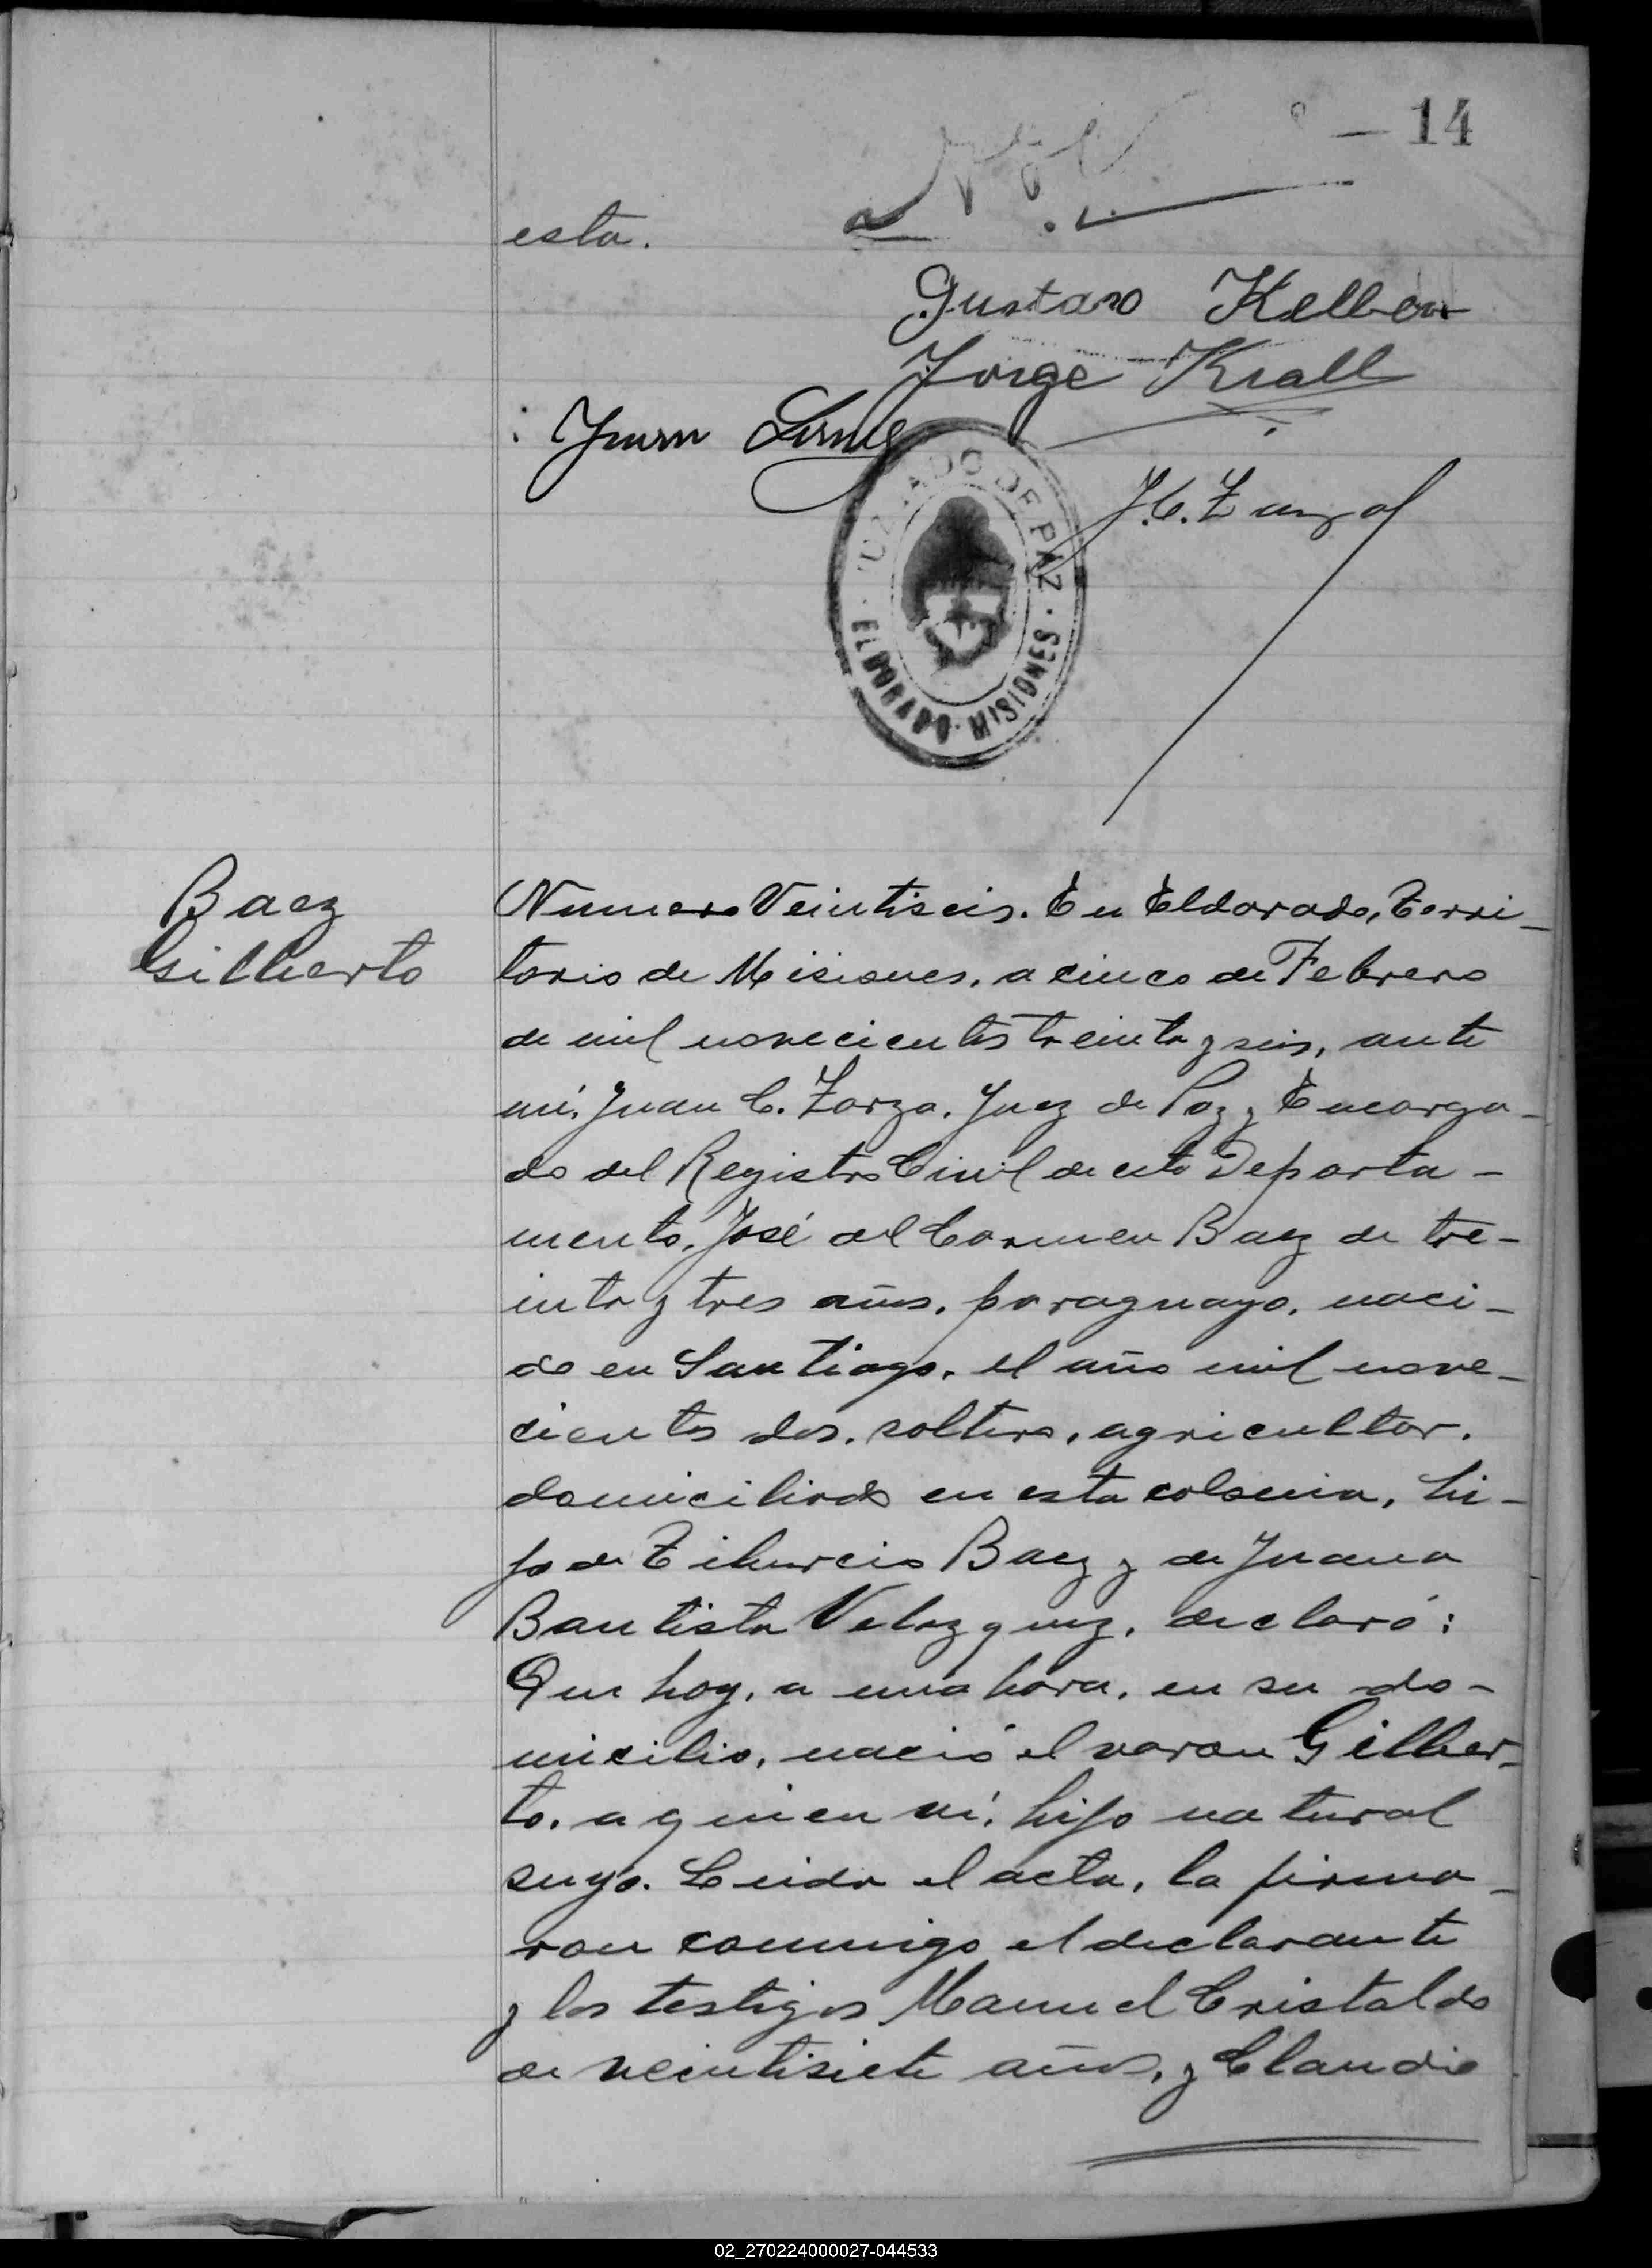 14
esta.
Gustavo Kelber
Jorge Krall
JUZGADO DE PAZ
ELDORADO - MISIONES
Baez
Gilberto
Numero Veintiseis. En Eldorado, Terri-
torio de Misiones, a cinco de Febrero
de mil novecientos treinta y seis, ante
mi, Juan C. Zarza, Juez de Paz y Encarga-
do del Registro Civil de este Departa-
mento, José del Carmen Baez de tre-
inta y tres años, paraguayo, naci-
do en Santiago, el año mil nove-
cientos dos, soltero, agricultor,
domiciliado en esta colonia, hi-
jo de Tiburcio Baez y de Juana
Bautista Velazquez, declaró:
Que hoy, a una hora, en su do-
micilio, nació el varon Gilber-
to, a quien ví, hijo natural
suyo. Leida el acta, la firma-
ron conmigo el declarante
y los testigos Manuel Cristaldo
de veintisiete años, y Claudio
02_270224000027-044533